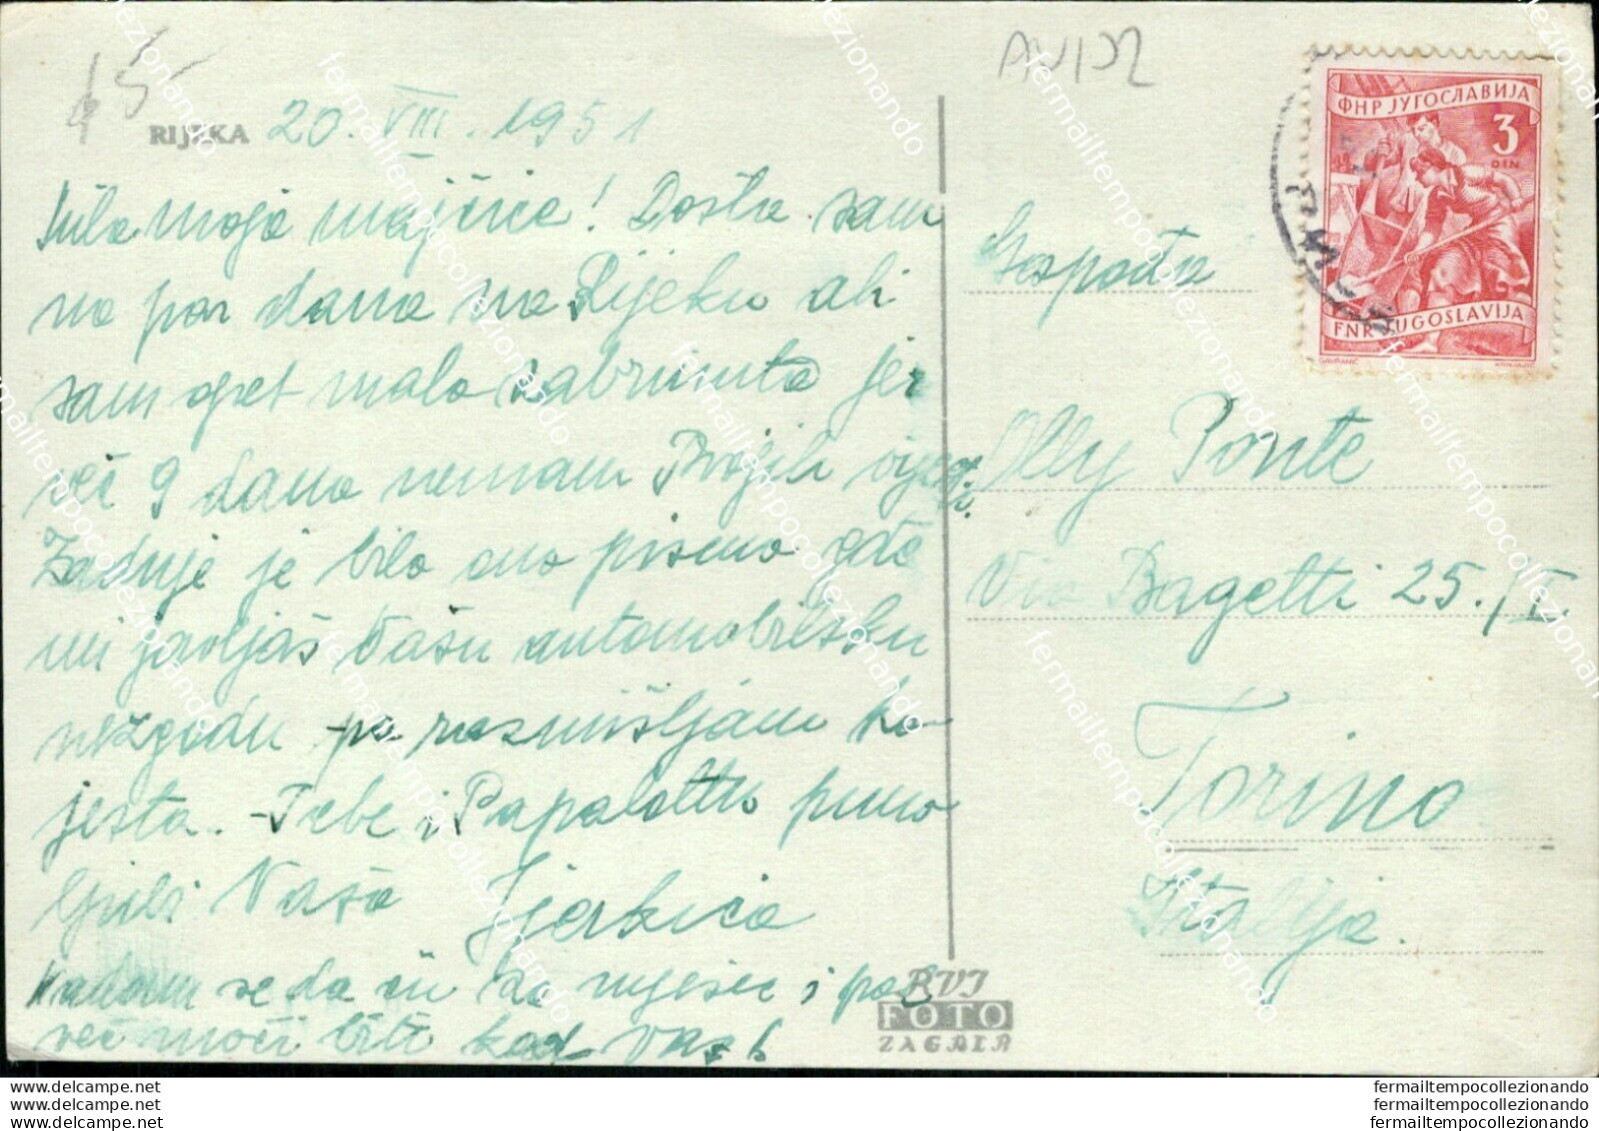 15
AVION
RIJEKA 20. VIII. 1951
Mila moja majčice! Došla sam
na par dana na Rijeku ali
sam opet malo zabrinuta jer
već 9 dana nemam Vaših vijesti.
Zadnje je bilo ono pismo gdje
mi javljaš Vašu automobilsku
nezgodu pa razmišljam ko-
jesta. - Tebe i Papalottu puno
ljubi Vaša Jjerkica
Nadam se da ću za mjesec i pol
već moći biti kod vas!
Gospođa
Olly Ponte
Via Bagetti 25./I.
Torino
Italija.
ФНР ЈУГОСЛАВИЈА
3
DIN
FNR JUGOSLAVIJA
RVI
FOTO
ZAGREB
delcampe.net
delcampe.net
delcampe.net
fermailtempocollezionando
fermailtempocollezionando
fermailtempocollezionando